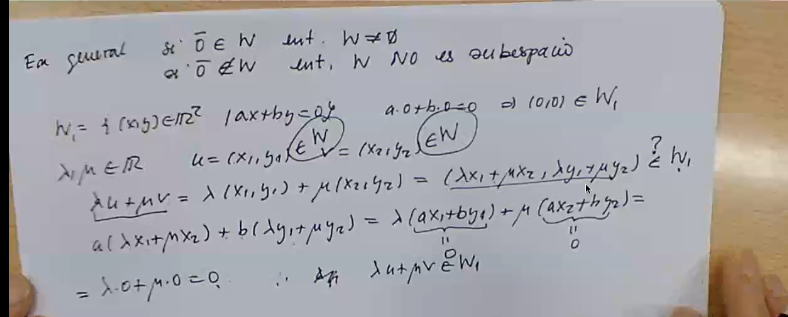 En general si 0̅ ∈ W ent. W ≠ ∅
si 0̅ ∉ W ent, W NO es subespacio
W₁ = {(x,y) ∈ ℝ² / ax+by=0} a·0+b·0=0 ⇒ (0,0) ∈ W₁
λ, μ ∈ ℝ u = (x₁, y₁) ∈ W v = (x₂, y₂) ∈ W
λu+μv = λ(x₁,y₁) + μ(x₂,y₂) = (λx₁+μx₂, λy₁+μy₂) ∈? W₁
a(λx₁+μx₂) + b(λy₁+μy₂) = λ(ax₁+by₁) + μ(ax₂+by₂) =
= =
0 0
= λ·0+μ·0=0. ∴ λu+μv ∈ W₁